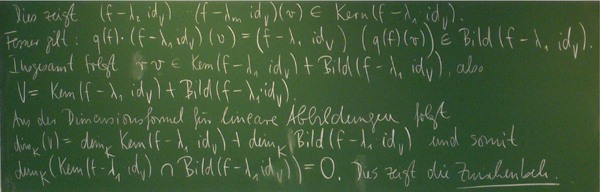 Dies zeigt (f-λ₂ id_V) (f-λ_m id_V)(v) ∈ Kern(f-λ₁ id_V).
Ferner gilt: q(f)·(f-λ₁ id_V)(v) = (f-λ₁ id_V) (q(f)(v)) ∈ Bild(f-λ₁ id_V).
Insgesamt folgt v ∈ Kern(f-λ₁ id_V) + Bild(f-λ₁ id_V), also
V = Kern(f-λ₁ id_V) + Bild(f-λ₁·id_V).
Aus der Dimensionsformel für lineare Abbildungen folgt
dim_K(V) = dim_K Kern(f-λ₁ id_V) + dim_K Bild(f-λ₁ id_V) und somit
dim_K(Kern(f-λ₁ id_V) ∩ Bild(f-λ₁ id_V)) = 0. Dies zeigt die Zwischenbeh.